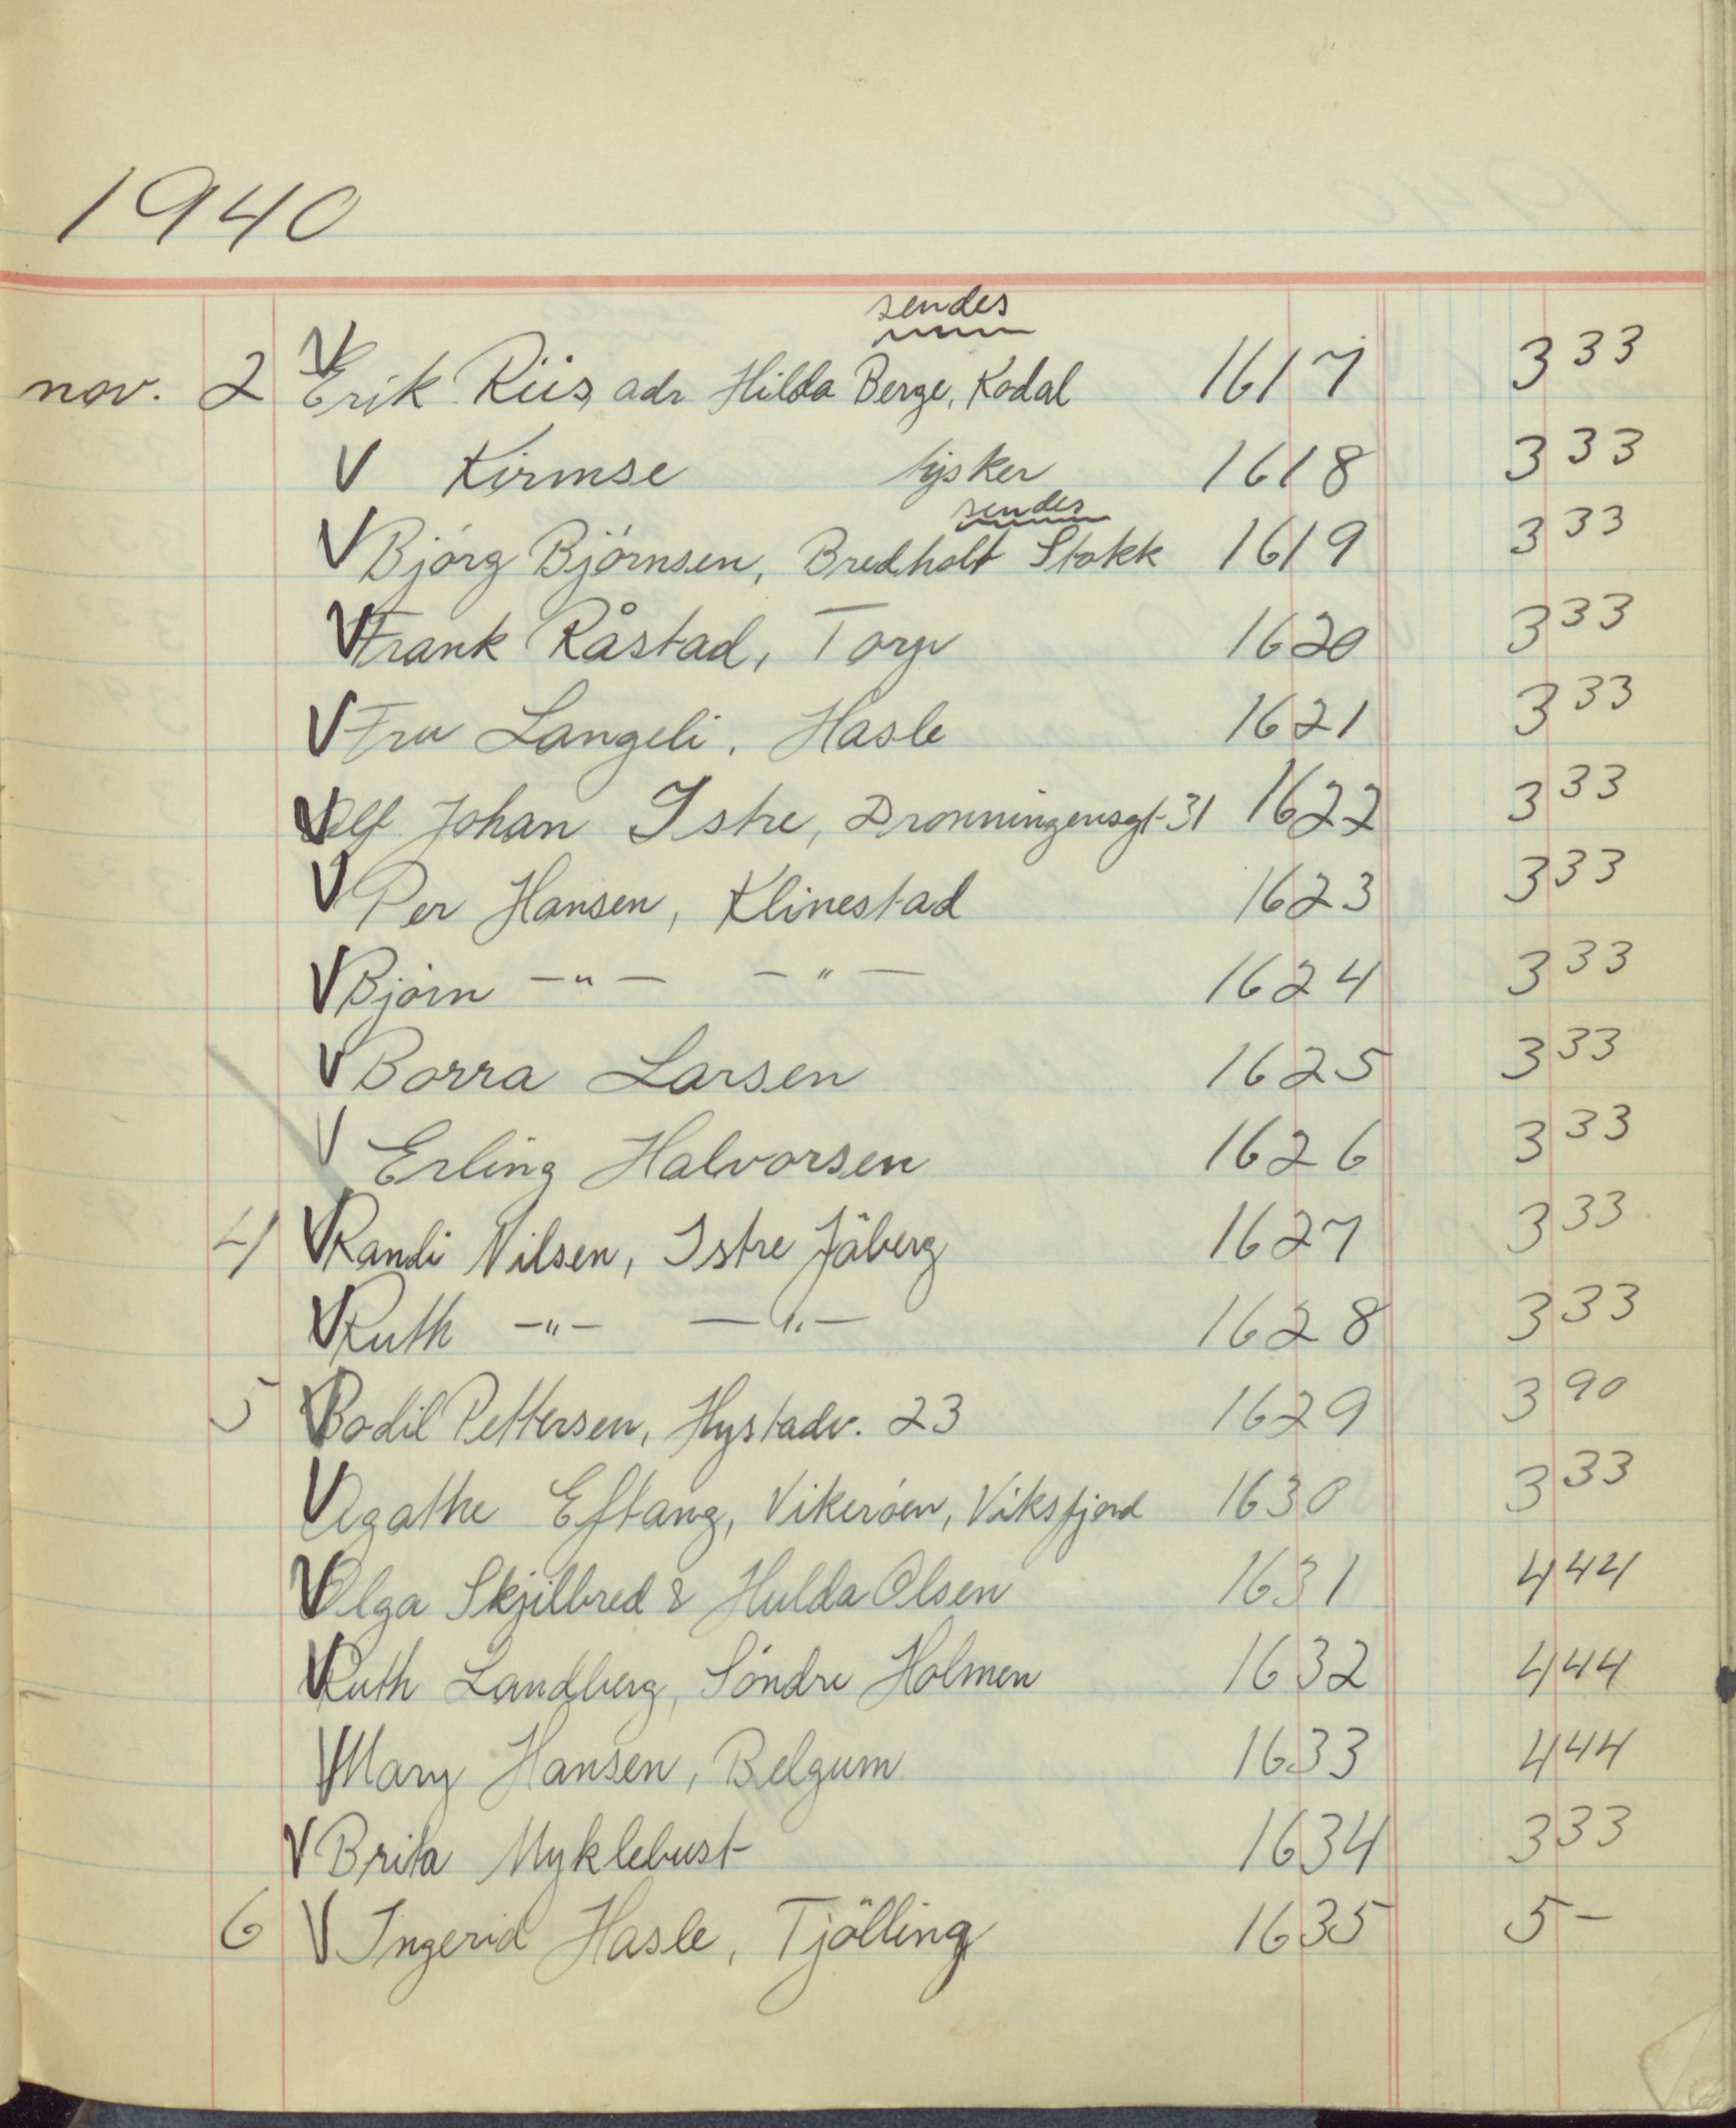 1940
sendes
nov. 2 V Erik Riis, adr Hilda Berge, Kodal 1617 3 33
V Kirmse tysker 1618 3 33
sendes
V Bjørg Bjørnsen, Bredholt Stokk 1619 3 33
V Frank Råstad, Torp 1620 3 33
V Fru Langeli, Hasle 1621 3 33
V Alf Johan Istre, Dronningensgt 31 1622 3 33
V Per Hansen, Klinestad 1623 3 33
V Bjørn —"— —"— 1624 3 33
V Borra Larsen 1625 3 33
V Erling Halvorsen 1626 3 33
4 V Randi Nilsen, Istre Jåberg 1627 3 33
V Ruth —"— —"— 1628 3 33
5 V Bodil Pettersen, Hystadv. 23 1629 3 90
V Agathe Eftang, Vikerøen, Viksfjord 1630 3 33
V Olga Skjilbred & Hulda Olsen 1631 4 44
V Ruth Landberg, Søndre Holmen 1632 4 44
V Mary Hansen, Belgum 1633 4 44
V Brita Myklebust 1634 3 33
6 V Ingerid Hasle, Tjölling 1635 5 —